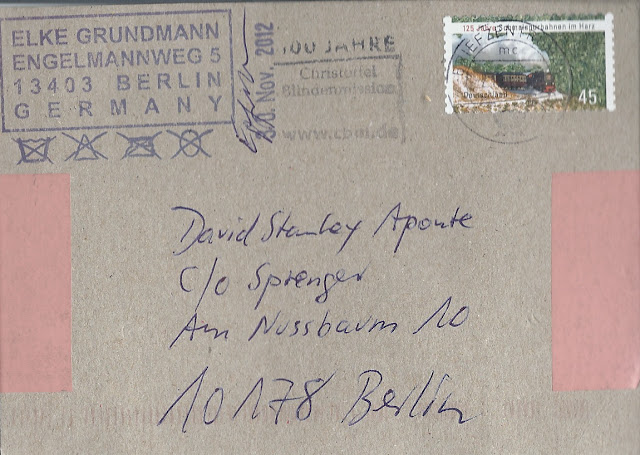 ELKE GRUNDMANN
ENGELMANNWEG 5
13403 BERLIN
GERMANY
20. Nov. 2012
100 JAHRE
Christoffel
Blindenmission
www.cbm.de
125 Jahre Schmalspurbahnen im Harz
Deutschland
45
mc
David Stanley Aponte
C/o Sprenger
Am Nussbaum 10
10178 Berlin